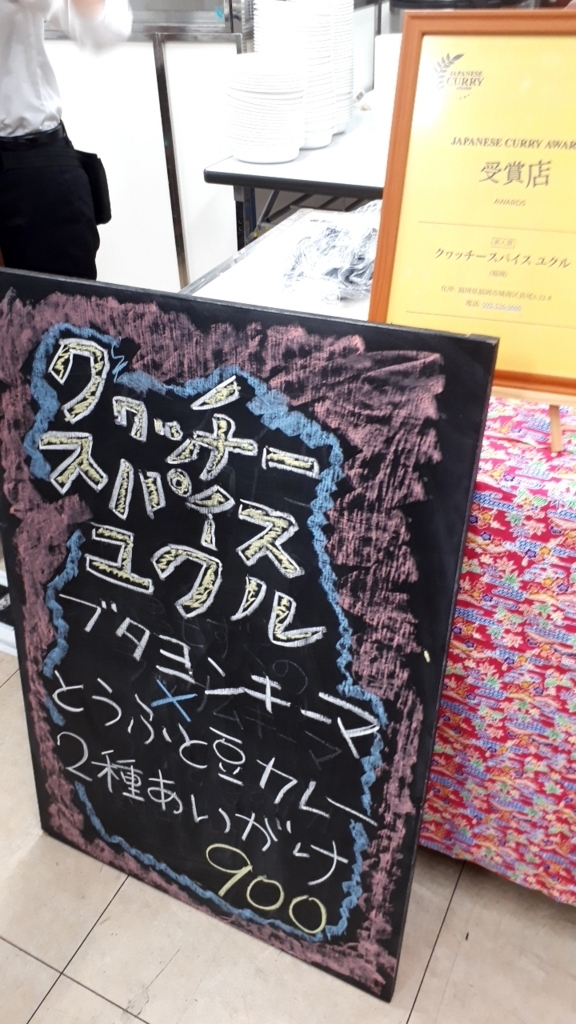 クヮッチー
スパイス
ユクル
ブタヨンキーマ
×
とうふと豆カレー
2種あいがけ
900
JAPANESE
CURRY
JAPANESE CURRY AWAR
受賞店
AWARDS
クヮッチースパイス ユクル